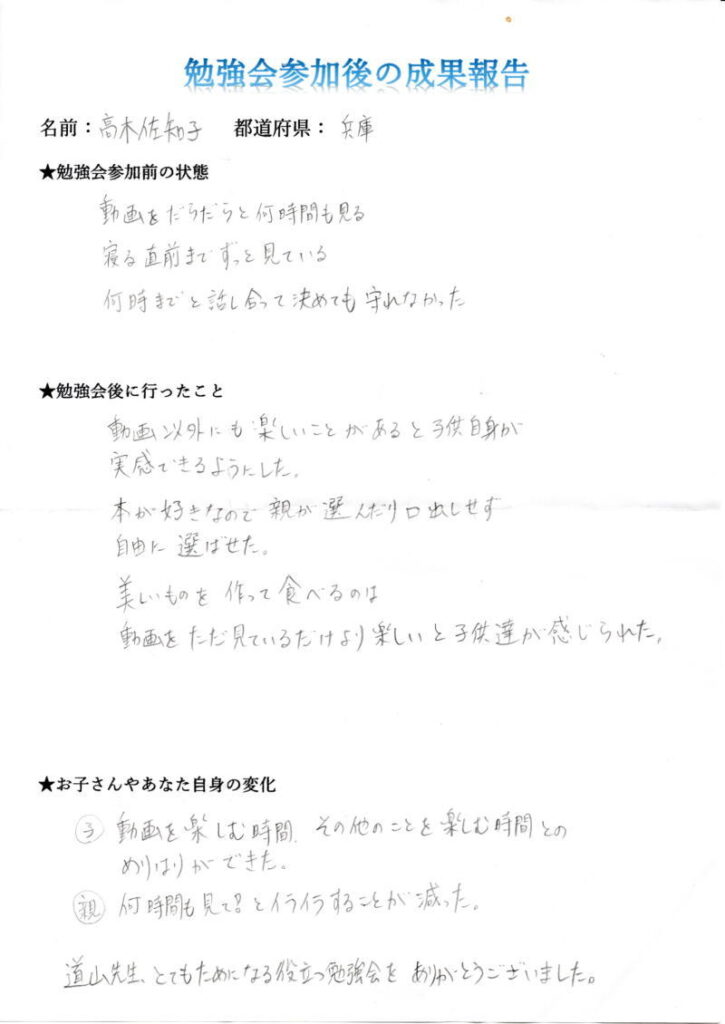 勉強会参加後の成果報告
名前：高木佐知子 都道府県： 兵庫
★勉強会参加前の状態
動画をだらだらと何時間も見る
寝る直前までずっと見ている
何時までと話し合って決めても守れなかった
★勉強会後に行ったこと
動画以外にも楽しいことがあると子供自身が
実感できるようにした。
本が好きなので親が選んだり口出しせず
自由に選ばせた。
美しいものを作って食べるのは
動画をただ見ているだけより楽しいと子供達が感じられた。
★お子さんやあなた自身の変化
子 動画を楽しむ時間、その他のことを楽しむ時間との
めりはりができた。
親 何時間も見て?とイライラすることが減った。
道山先生、とてもためになる役立つ勉強会をありがとうございました。